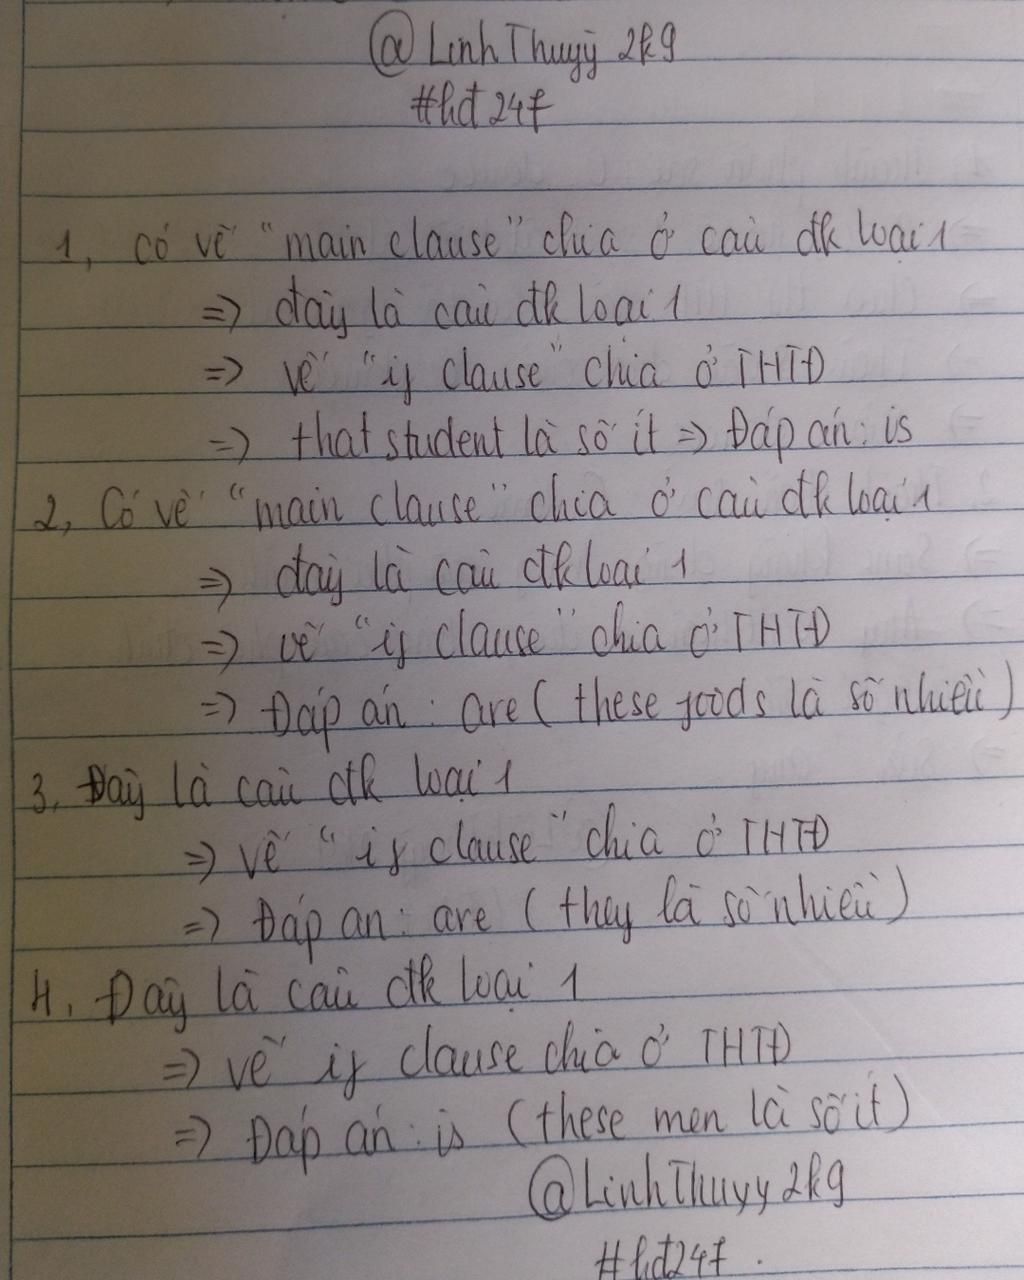 @LinhThuyy2k9
#hđ247
1, Có vế "main clause" chia ở câu đk loại 1
=> đây là câu đk loại 1
=> vế "if clause" chia ở THTĐ
=> that student là số ít => Đáp án: is
2, Có vế "main clause" chia ở câu đk loại 1
=> đây là câu đk loại 1
=> vế "if clause" chia ở THTĐ
=> Đáp án: are ( these goods là số nhiều )
3, Đây là câu đk loại 1
=> vế "if clause" chia ở THTĐ
=> Đáp án: are ( they là số nhiều )
4, Đây là câu đk loại 1
=> vế if clause chia ở THTĐ
=> Đáp án: is ( these men là số ít )
@LinhThuyy2k9
#hđ247.